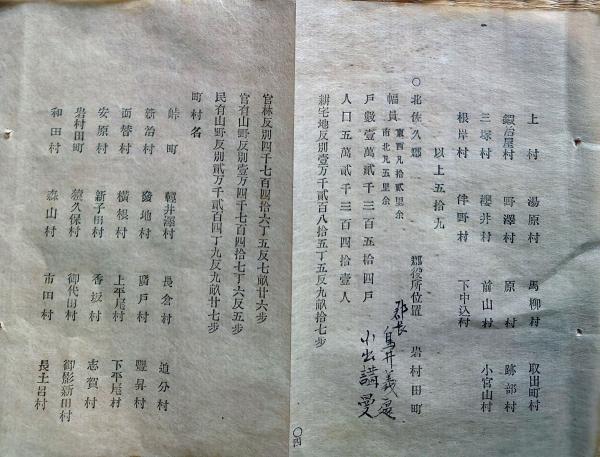 上村 湯原村 馬柳村 取出町村
鍛冶屋村 野澤村 原村 跡部村
三塚村 櫻井村 前山村 小宮山村
根岸村 伴野村 下中込村
以上五拾九
○北佐久郡 郡役所位置 岩村田町
幅員 東西凡拾貳里余
南北凡五里余
郡長
戸數壹萬貳千三百五拾四戸
人口五萬貳千三百四拾壹人
耕宅地反別壹万千貳百八拾五丁五反九畝拾七步
官林反別四千七百四拾六丁五反七畝廿六步
官有山野反別壹万四千七百四拾七丁六反五步
民有山野反別貳万千貳百四丁九反九畝廿七步
町村名
峠町 輕井澤村 長倉村 追分村
新治村 發地村 廣戸村 豐昇村
面替村 橫根村 上平尾村 下平尾村
安原村 新子田村 香坂村 志賀村
岩村田町 猿久保村 御代田村 御影新田村
和田村 森山村 市田村 長土呂村